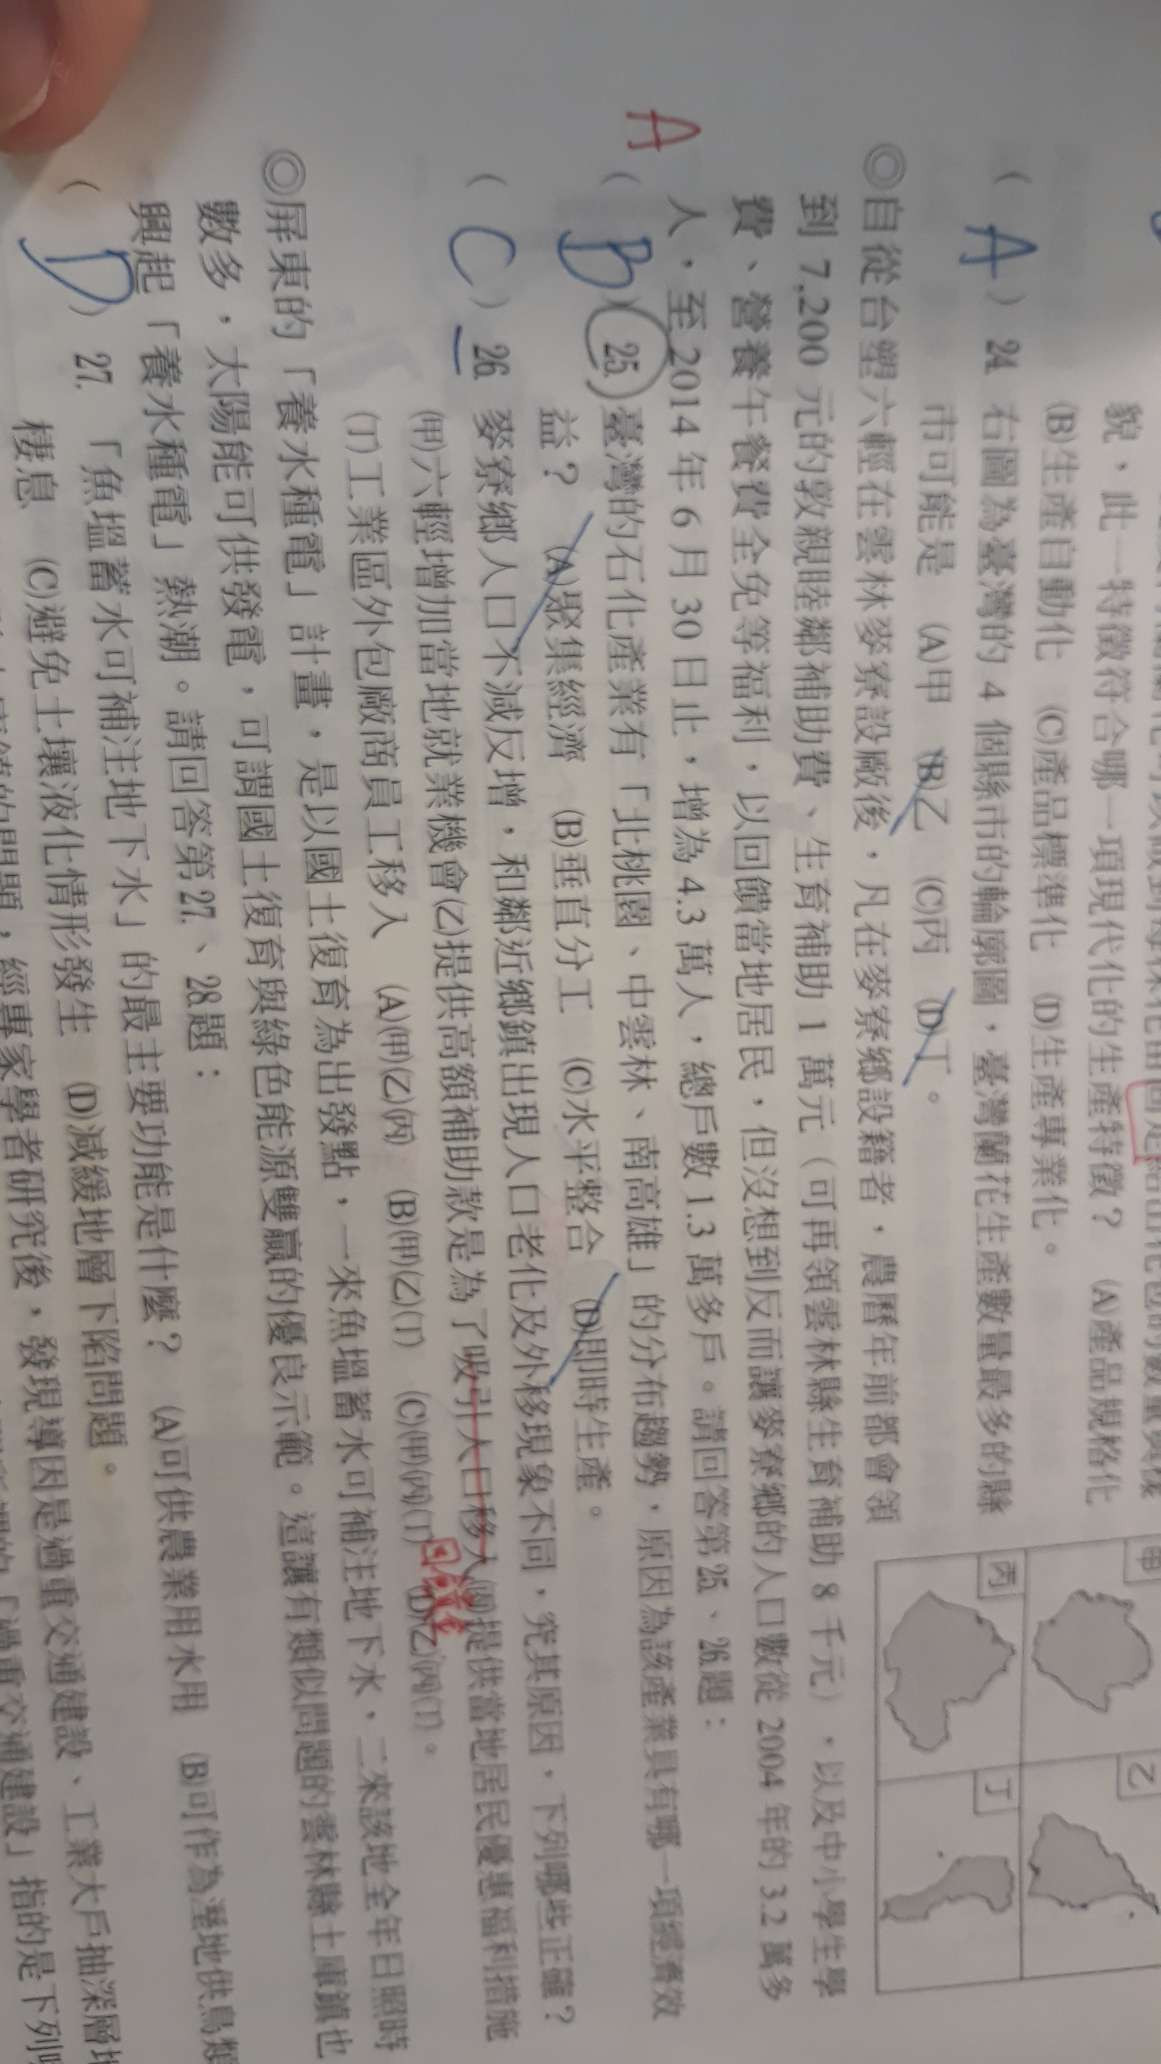 貌,此一特徵符合哪一項現代化的生產特徵? (A)產品規格化
(B)生產自動化 (C)產品標準化 (D)生產專業化。
(A) 24. 右圖為臺灣的4個縣市的輪廓圖,臺灣蘭花生產數量最多的縣
市可能是 (A)甲 (B)乙 (C)丙 (D)丁。
甲
乙
丙
丁
◎自從台塑六輕在雲林麥寮設廠後,凡在麥寮鄉設籍者,農曆年前都會領
到7,200元的敦親睦鄰補助費、生育補助1萬元(可再領雲林縣生育補助8千元),以及中小學生學
費、營養午餐費全免等福利,以回饋當地居民,但沒想到反而讓麥寮鄉的人口數從2004年的3.2萬多
人,至2014年6月30日止,增為4.3萬人,總戶數1.3萬多戶。請回答第25、26.題:
A
(B) 25. 臺灣的石化產業有「北桃園、中雲林、南高雄」的分布趨勢,原因為該產業具有哪一項經濟效
益? (A)聚集經濟 (B)垂直分工 (C)水平整合 (D)即時生產。
(C) 26. 麥寮鄉人口不減反增,和鄰近鄉鎮出現人口老化及外移現象不同,究其原因,下列哪些正確?
(甲)六輕增加當地就業機會(乙)提供高額補助款是為了吸引人口移入(丙)提供當地居民優惠福利措施
(丁)工業區外包廠商員工移入 (A)(甲)(乙)(丙) (B)(甲)(乙)(丁) (C)(甲)(丙)(丁) (D)(乙)(丙)(丁)。
◎屏東的「養水種電」計畫,是以國土復育為出發點,一來魚塭蓄水可補注地下水,二來該地全年日照時
數多,太陽能可供發電,可謂國土復育與綠色能源雙贏的優良示範。這讓有類似問題的雲林縣土庫鎮也
興起「養水種電」熱潮。請回答第27.、28.題:
(D) 27. 「魚塭蓄水可補注地下水」的最主要功能是什麼? (A)可供農業用水用 (B)可作為溼地供鳥類
棲息 (C)避免土壤液化情形發生 (D)減緩地層下陷問題。
經專家學者研究後,發現導因是過重交通建設、工業大戶抽深層地